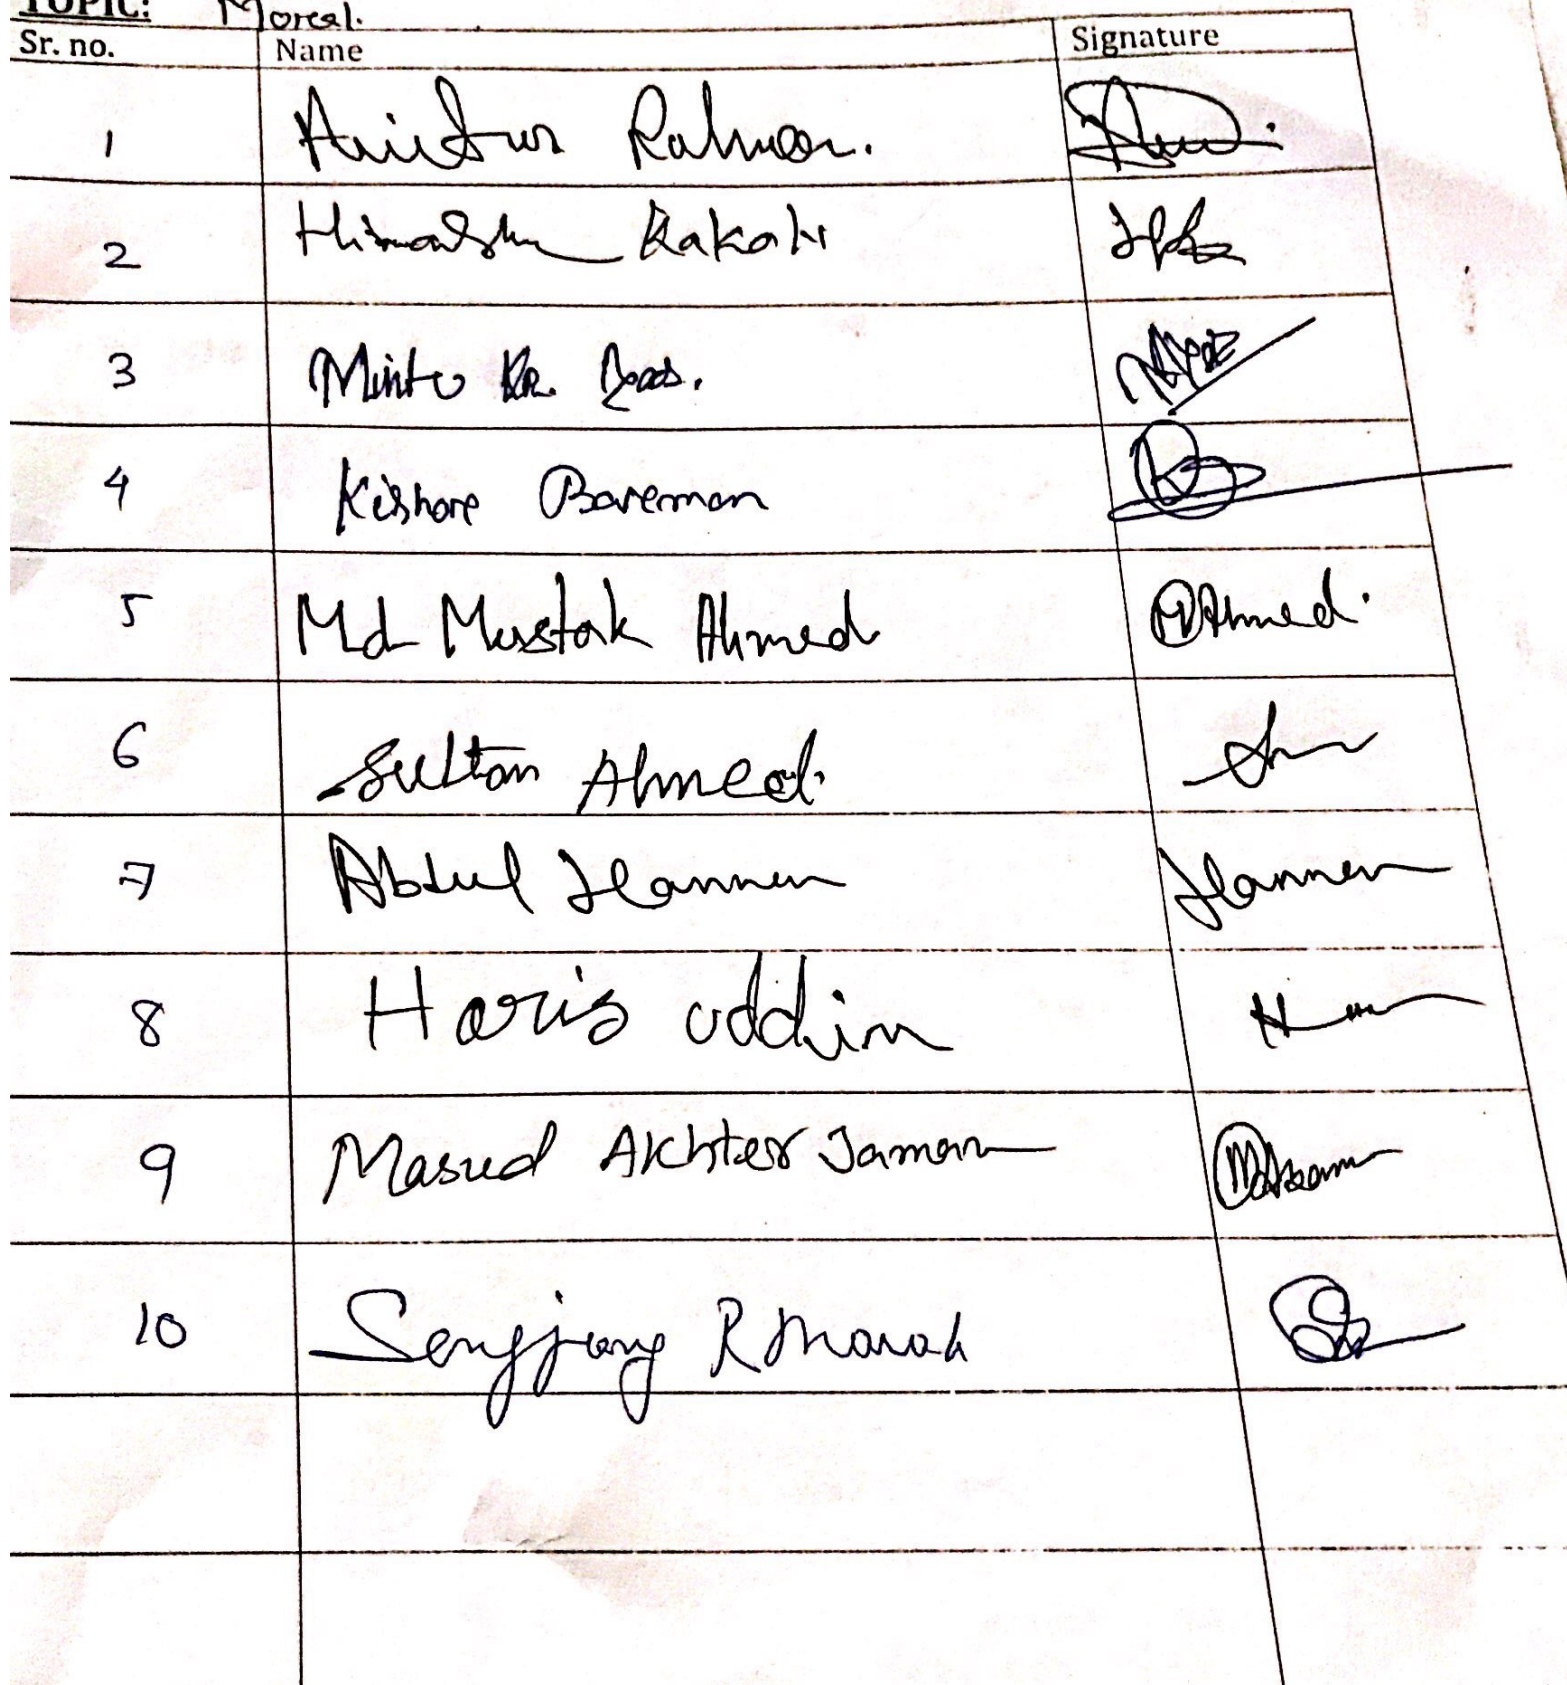 TOPIC: Moral.
Sr. no. Name Signature
1 Rahman.
2 Himadshu Kakati
3 Mintu Kr. Das.
4 Kishore Boreman
5 Md Mustak Ahmed Ahmed.
6 Sultan Ahmed.
7 Abdul Hannan Hannan
8 Haris uddin
9 Masud Akhter Jaman
10 Sengjang R Marak